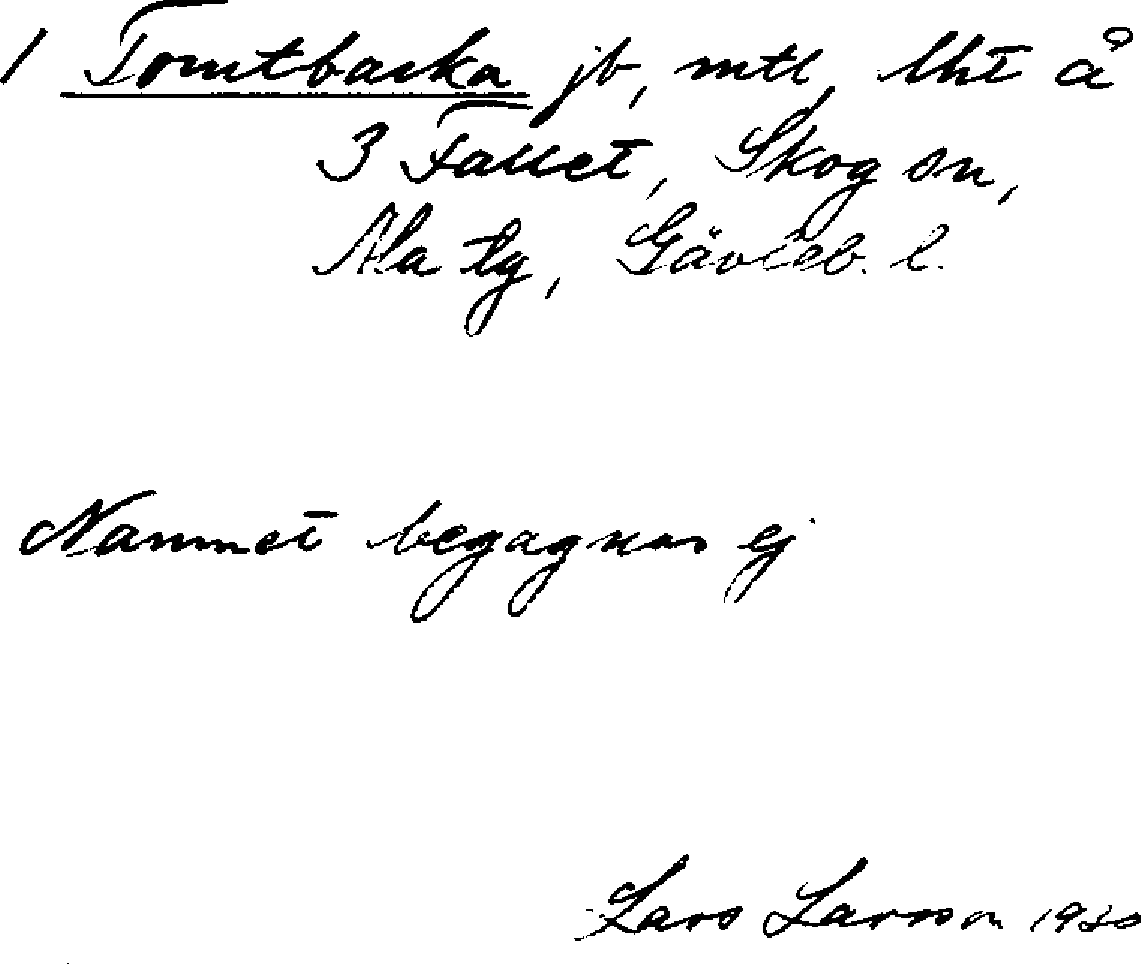 1 Tomtbacka jb, mtl lht å
3 Fallet, Skog sn,
Ala tg, Gävleb. l.
Namnet begagnas ej
Lars Larsson